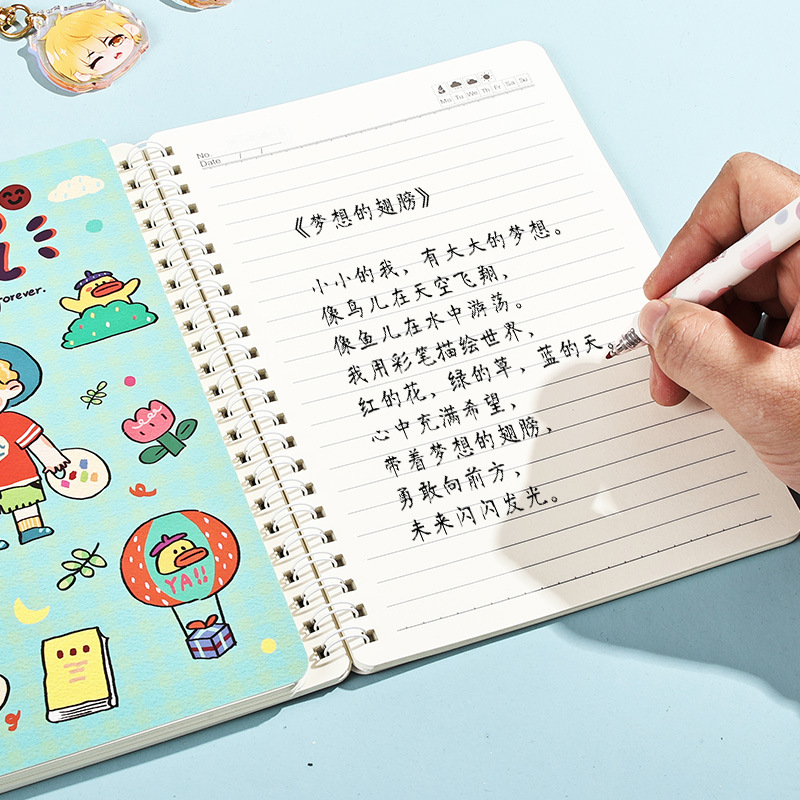 Mo Tu We Th Fr Sa Su
No
Date / /
《梦想的翅膀》
小小的我，有大大的梦想。
像鸟儿在天空飞翔，
像鱼儿在水中游荡。
我用彩笔描绘世界，
红的花，绿的草，蓝的天。
心中充满希望，
带着梦想的翅膀，
勇敢向前方，
未来闪闪发光。
forever.
YA!!